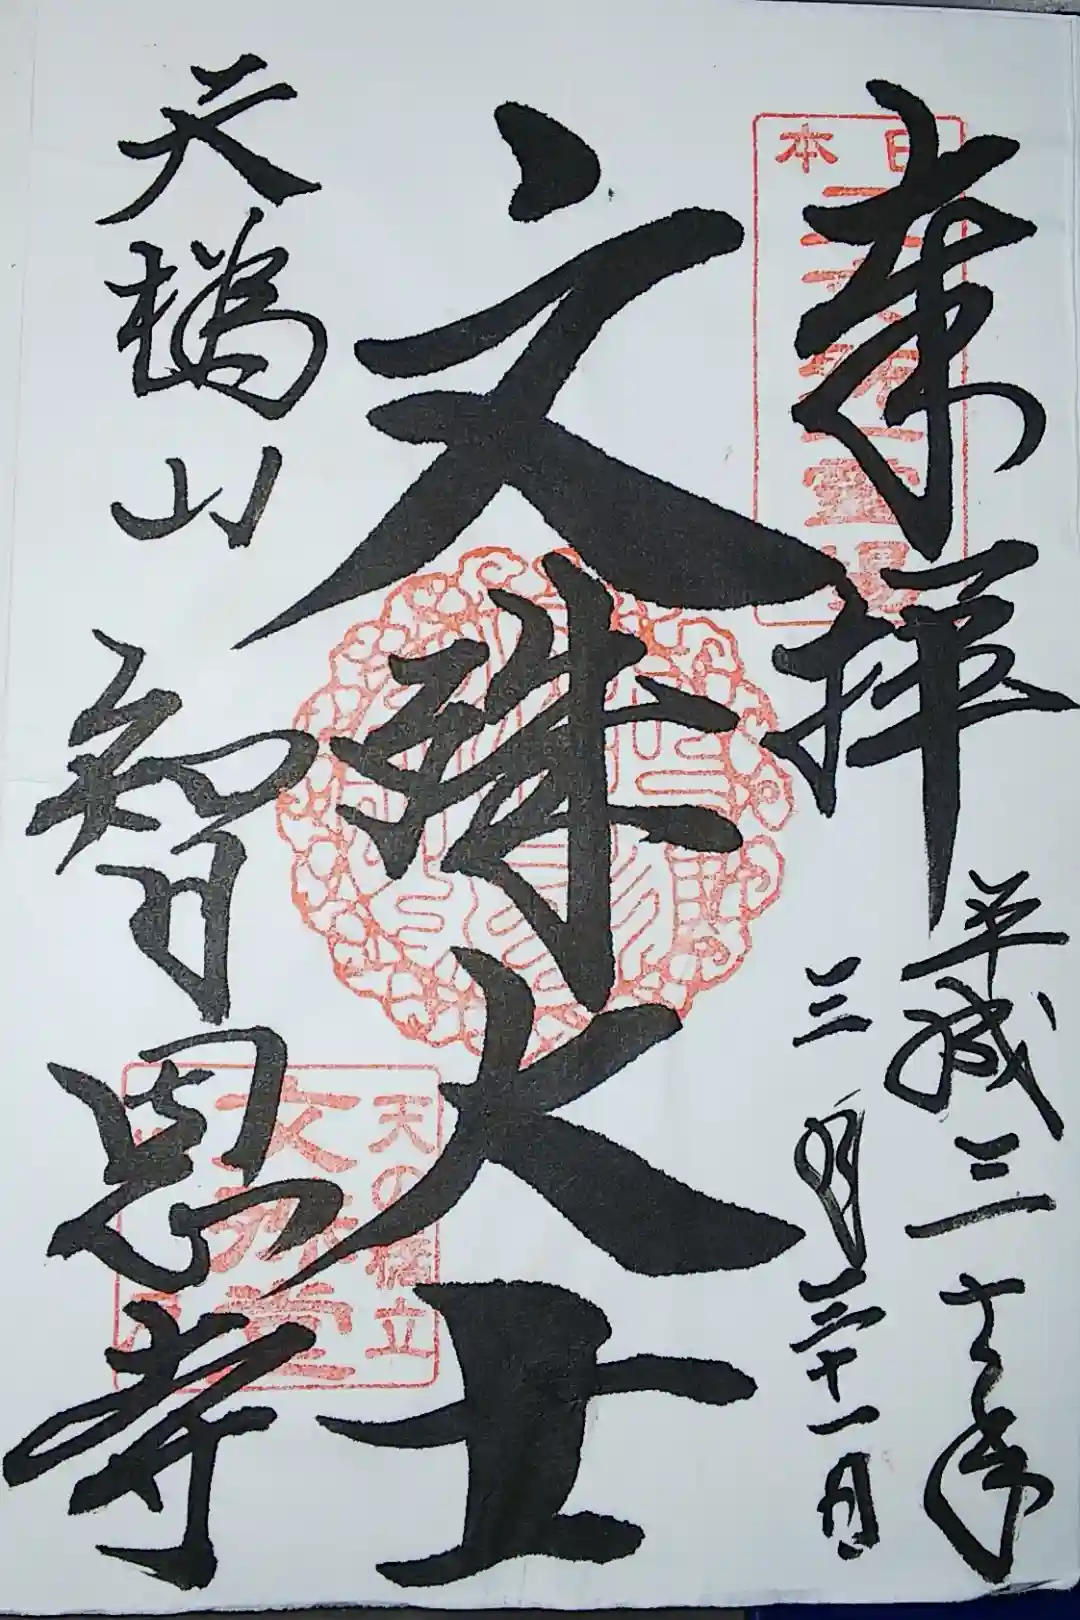 奉拝
平成三十一年
三月三十一日
日本
文殊大士
天橋山
智恩寺
天の橋立
文殊堂